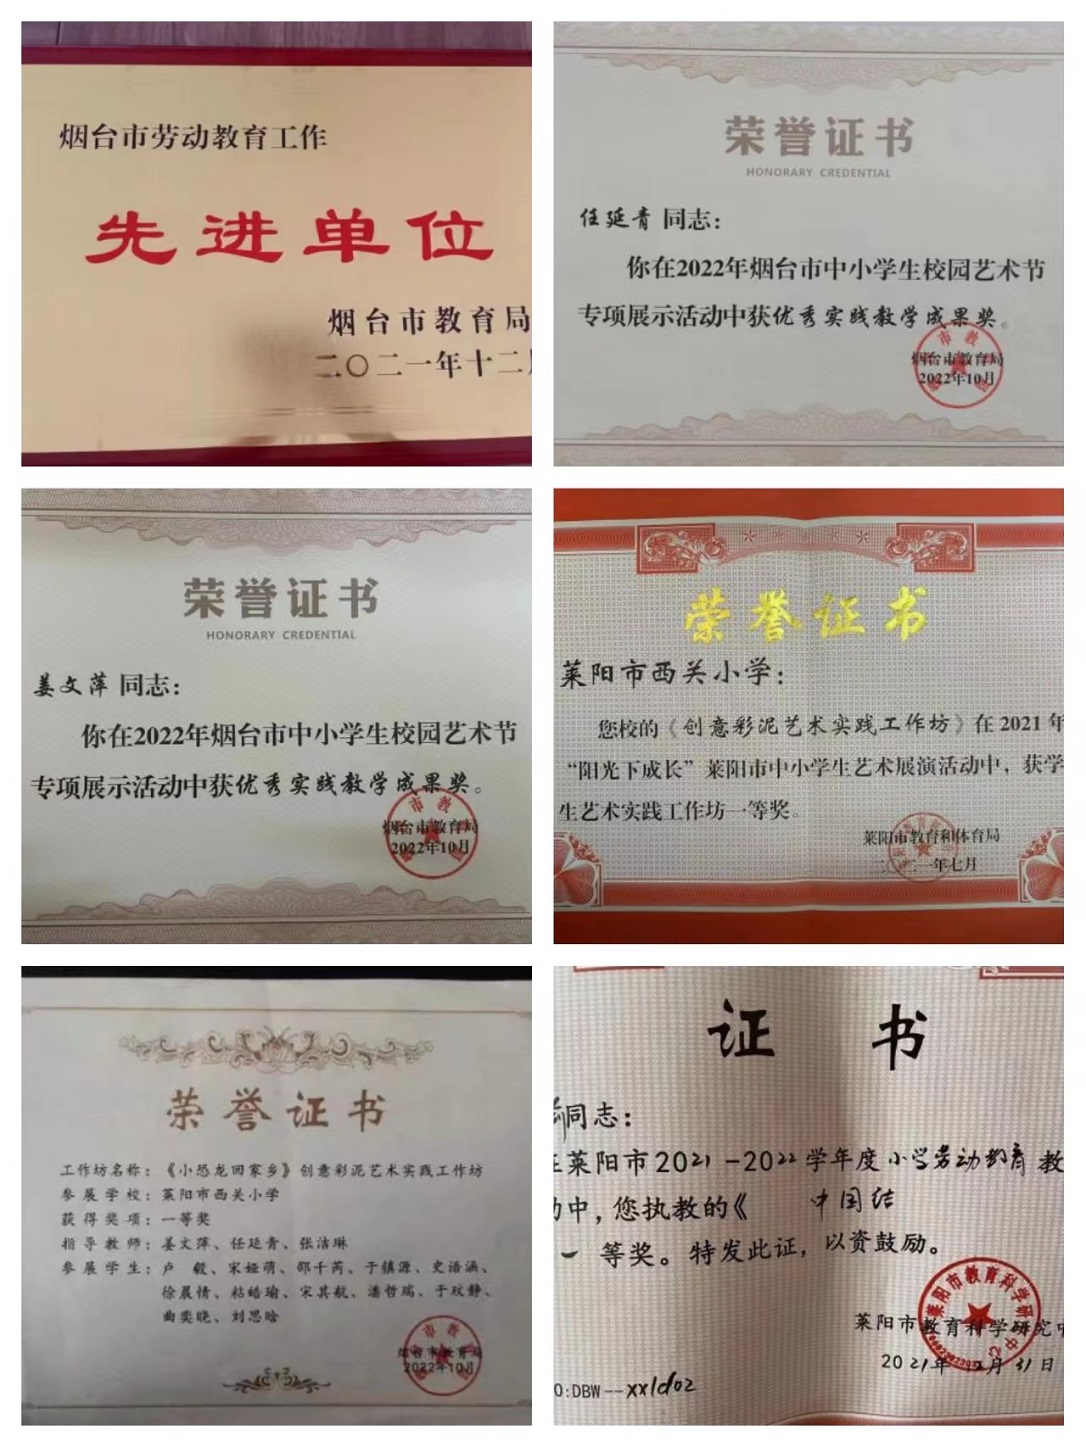 烟台市劳动教育工作
先进单位
烟台市教育局
二〇二一年十二月
荣誉证书
HONORARY CREDENTIAL
任延青 同志：
你在2022年烟台市中小学生校园艺术节
专项展示活动中获优秀实践教学成果奖。
烟台市教育局
2022年10月
荣誉证书
HONORARY CREDENTIAL
姜文萍 同志：
你在2022年烟台市中小学生校园艺术节
专项展示活动中获优秀实践教学成果奖。
烟台市教育局
2022年10月
荣誉证书
莱阳市西关小学：
您校的《创意彩泥艺术实践工作坊》在2021年
“阳光下成长”莱阳市中小学生艺术展演活动中，获学
生艺术实践工作坊一等奖。
莱阳市教育和体育局
二〇二一年七月
荣誉证书
工作坊名称：《小恐龙回家乡》创意彩泥艺术实践工作坊
参展学校：莱阳市西关小学
获得奖项：一等奖
指导教师：姜文萍、任延青、张洁琳
参展学生：卢 毅、宋娅萌、邵千芮、于镇源、史语涵、
徐晨情、粘皓瑜、宋其航、潘哲瑞、于玟静、
曲奕晓、刘思晗
烟台市教育局
2022年10月
证 书
同志：
莱阳市2021-2022学年度小学劳动教育教
中，您执教的《 中国结
一等奖。特发此证，以资鼓励。
莱阳市教育科学研究中
2021年12月31日
O:DBW--xxld02